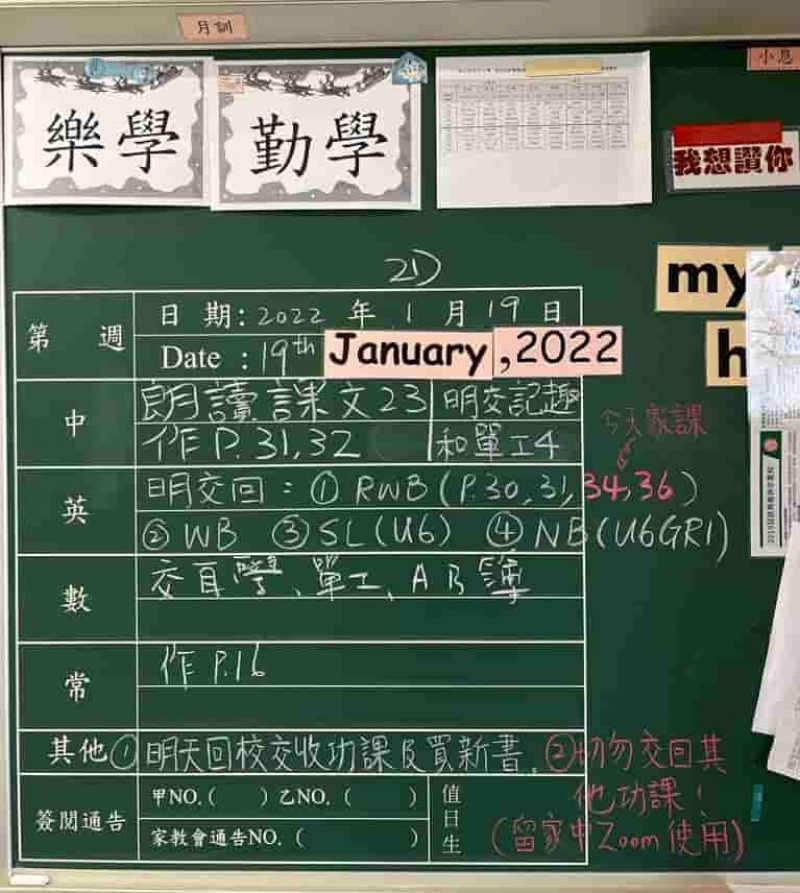 月訓
小息
樂學
勤學
我想讚你
my
h
21)
第 週
日 期: 2022 年 1 月 19 日
Date : 19th January ,2022
中
朗讀課文23
明交記趣
作 P.31,32
和單工4
今天家課
英
明交回：① RWB (P.30,31,34,36)
② WB ③ SL(U6) ④ NB(U6GR1)
數
交耳學、單工、AB簿
常
作 P.16
其他
①明天回校交收功課及買新書。
②切勿交回其他功課！
(留家中Zoom使用)
簽閱通告
甲NO. ( ) 乙NO. ( )
家教會通告NO. ( )
值日生